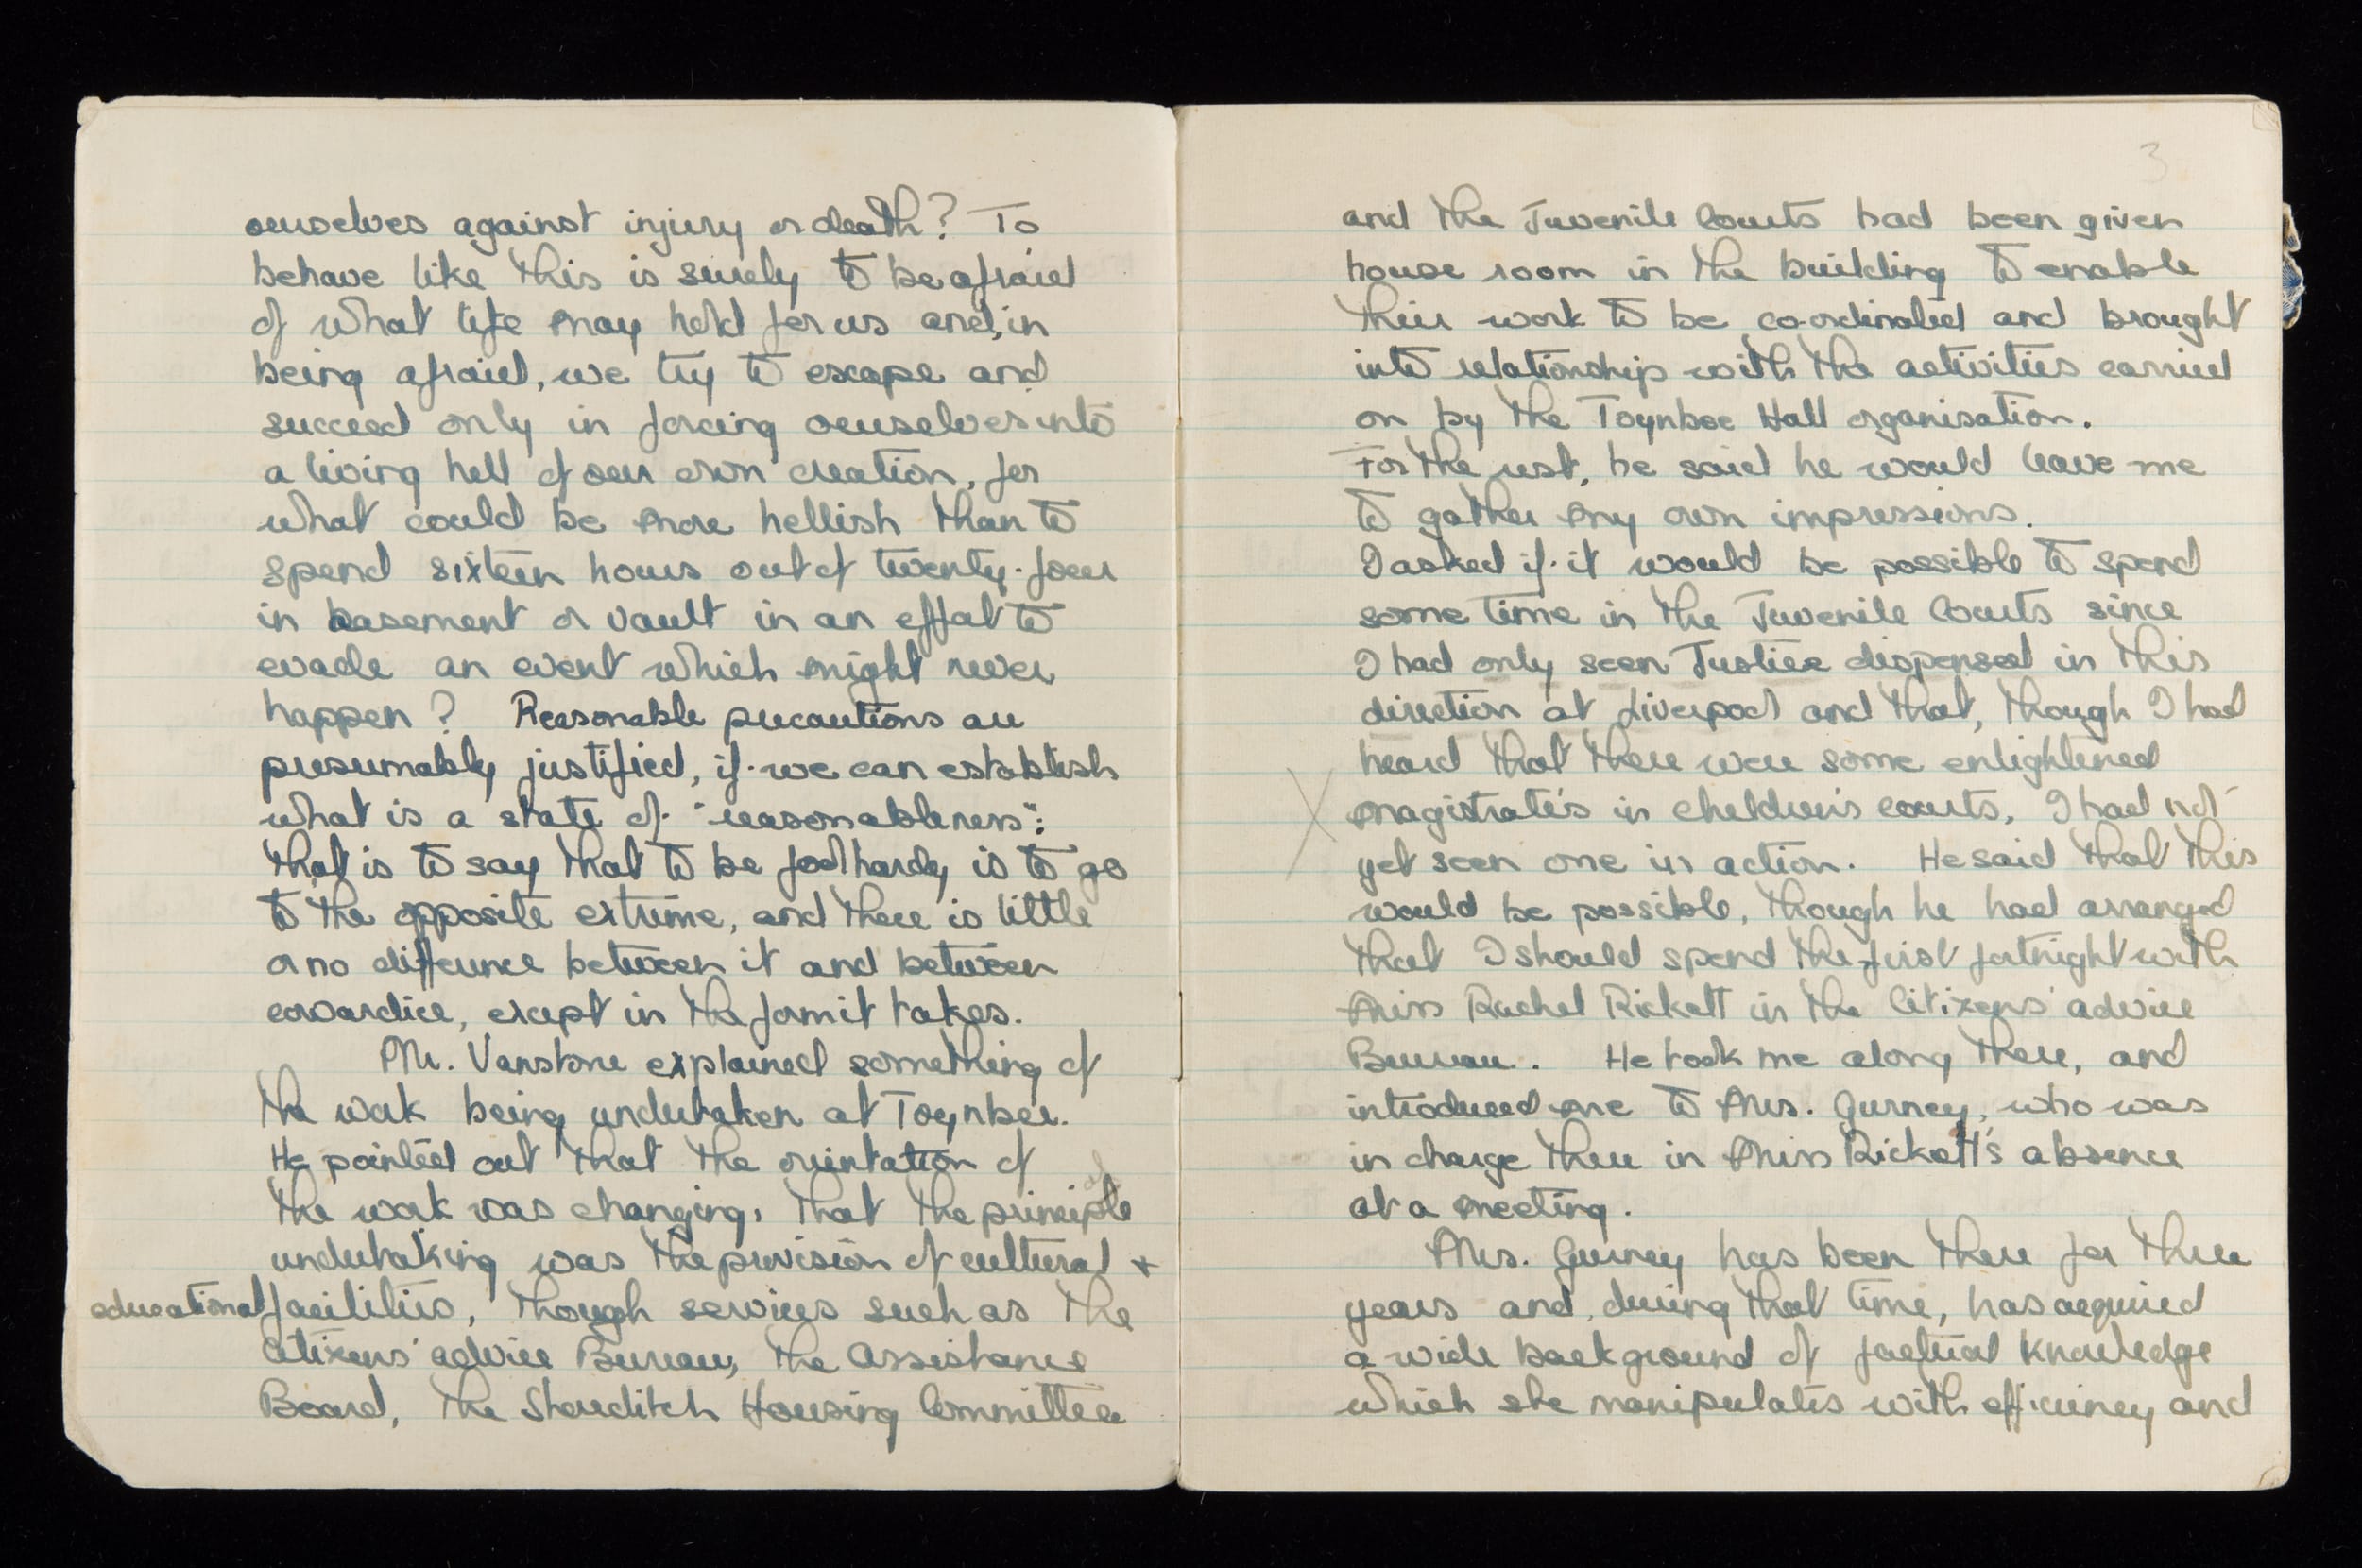 ourselves against injury or death? To
behave like this is surely to be afraid
of what life may hold for us and, in
being afraid, we try to escape and
succeed only in forcing ourselves into
a living hell of our own creation, for
what could be more hellish than to
spend sixteen hours out of twenty-four
in basement or vault in an effort to
evade an event which might never
happen? Reasonable precautions are
presumably justified, if we can establish
what is a state of "reasonableness":
that is to say that to be foolhardy is to go
to the opposite extreme, and there is little
or no difference between it and between
cowardice, except in the form it takes.
Mr. Vanstone explained something of
the work being undertaken at Toynbee.
He pointed out that the orientation of
the work was changing, that the principle
undertaking was the provision of cultural +
educational facilities, though services such as the
Citizens' advice Bureau, the Assistance
Board, the Shoreditch Housing Committee
3
and the Juvenile Courts had been given
house room in the building to enable
their work to be co-ordinated and brought
into relationship with the activities carried
on by the Toynbee Hall organisation.
For the rest, he said he would leave me
to gather my own impressions.
I asked if it would be possible to spend
some time in the Juvenile Courts since
I had only seen Justice dispensed in this
direction at Liverpool and that, though I had
heard that there were some enlightened
magistrate's in children's courts, I had not
yet seen one in action. He said that this
would be possible, though he had arranged
that I should spend the first fortnight with
Miss Rachel Rickett in the Citizens' advice
Bureau. He took me along there, and
introduced me to Mrs. Gurney, who was
in charge there in Miss Rickett's absence
at a meeting.
Mrs. Gurney has been there for three
years and, during that time, has acquired
a wide background of factual knowledge
which she manipulates with efficiency and